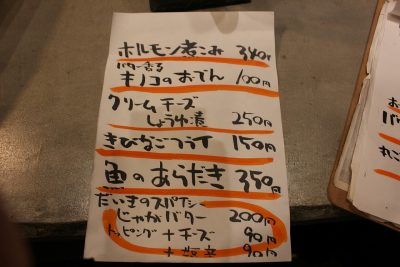 ホルモン煮こみ 340円
バター香る
キノコのおでん 100円
クリームチーズ
しょうゆ漬 250円
きびなごフライ 150円
魚のあらだき 350円
だいきのスパサラ
じゃがバター 200円
トッピング + チーズ 90円
+ 90円